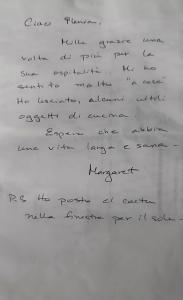 Ciao Flavia,
Mille grazie una
volta di più per la
sua ospitalità. Mi ho
sentito molto "a casa"
Ho lasciato, alcuni utili
oggetti di cucina.
Espero che abbia
una vita larga e sana -
Margaret
P.S Ho posto el carta
nella finestra per il sole -